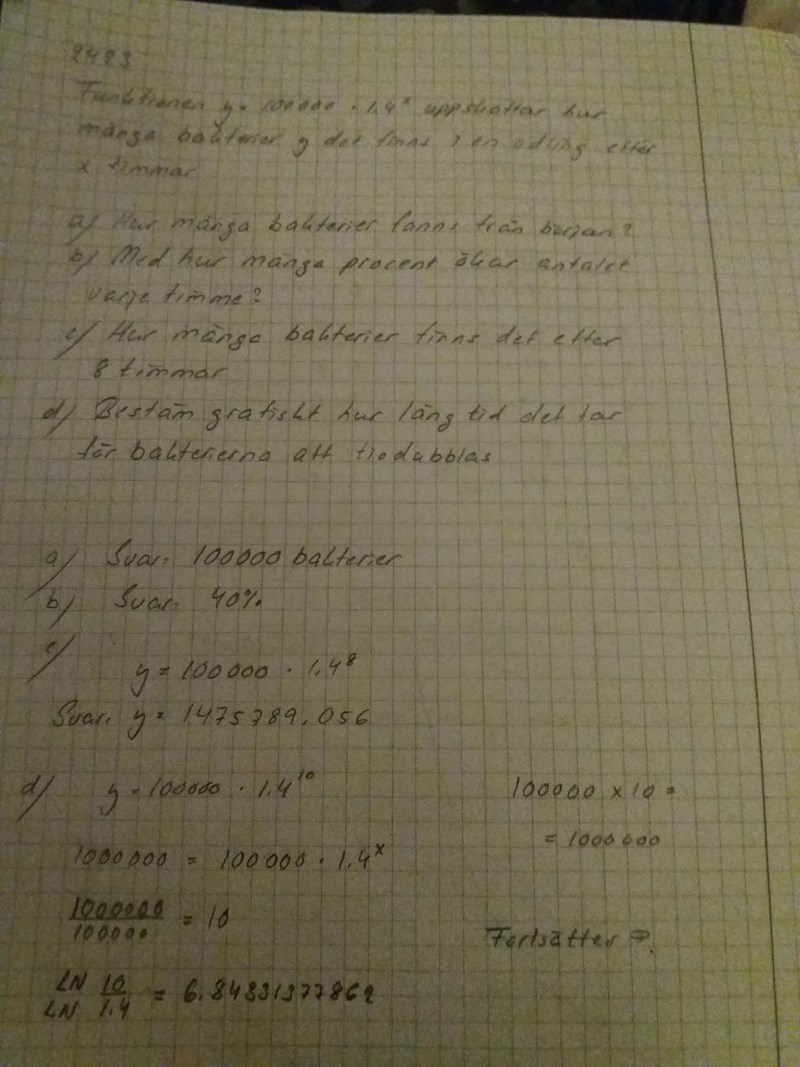 2423
Funktionen y = 100000 · 1.4^x uppskattar hur
många bakterier y det finns i en odling efter
x timmar.
a) Hur många bakterier fanns från början?
b) Med hur många procent ökar antalet
varje timme?
c) Hur många bakterier finns det efter
8 timmar
d) Bestäm grafiskt hur lång tid det tar
för bakterierna att tiodubblas
a) Svar: 100000 bakterier
b) Svar: 40%
c)
y = 100000 · 1.4^8
Svar: y = 1475789.056
d) y = 100000 · 1.4^10
100000 x 10 =
= 1000000
1000000 = 100000 · 1.4^x
1000000/100000 = 10
Fortsätter
LN 10 / LN 1.4 = 6.84331377862